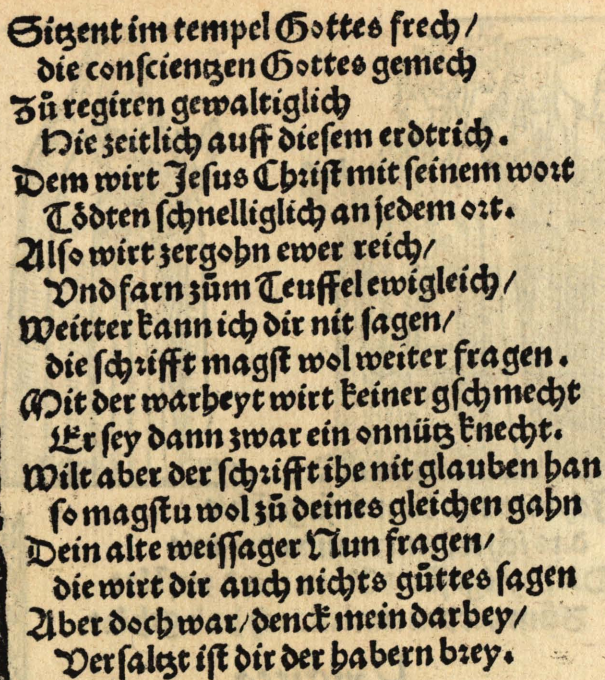 Sitzent im tempel Gottes frech /
die conscientzen Gottes gemech
Zů regiren gewaltiglich
Hie zeitlich auff diesem erdtrich .
Dem wirt Jesus Christ mit seinem wort
Tödten schnelliglich an jedem ort.
Also wirt zergohn ewer reich/
Vnd farn zům Teuffel ewigleich /
Weitter kann ich dir nit sagen/
die schrifft magst wol weiter fragen .
Mit der warheyt wirt keiner gschmecht
Er sey dann zwar ein onnütz knecht.
Wilt aber der schrifft ihe nit glauben han
so magstu wol zů deines gleichen gahn
Dein alte weissager Nun fragen/
die wirt dir auch nichts gůttes sagen
Aber doch war/denck mein darbey/
Versaltzt ist dir der habern brey.